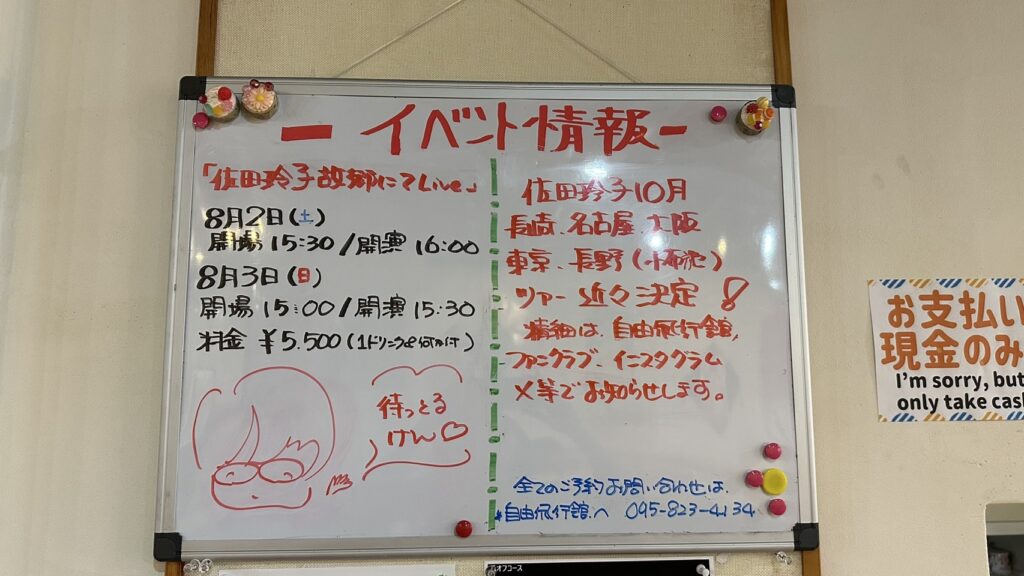 ー イベント情報 ー
「佐田玲子故郷にてLive」
8月2日(土)
開場 15:30 / 開演 16:00
8月3日(日)
開場 15:00 / 開演 15:30
料金 ¥5.500(1ドリンク
待っとる
けん♡
佐田玲子10月
長崎、名古屋、大阪
東京、長野(
ツアー 近々決定!
精細は、自由飛行館、
ファンクラブ、インスタグラム
X等でお知らせします。
全てのご予約お問い合わせは
自由飛行館へ 095-823-4134
お支払い
現金のみ
I'm sorry, but
only take cas
オフコース